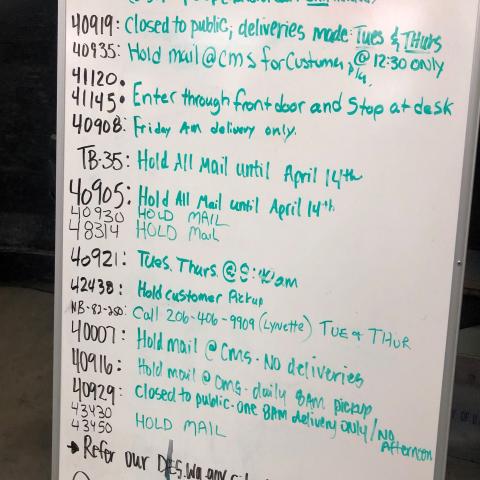 40919: Closed to public; deliveries made: Tues & Thurs
40935: Hold mail @ CMS for Customer @ 12:30 ONLY
41120:
41145: Enter through front door and Stop at desk
40908: Friday AM delivery only.
TB-35: Hold All Mail until April 14th
40905: Hold All Mail until April 14th
40930 HOLD MAIL
48314 HOLD Mail
40921: Tues. Thurs. @
42438: Hold customer Pickup
Call 206-406-9909 (Lynette) TUE & THUR
40007: Hold mail @ CMS - No deliveries
40916: Hold mail @ CMS - daily 8AM pickup
40929: Closed to public - one 8AM delivery only / NO Afternoon
43430
43450 HOLD MAIL
→ Refer our